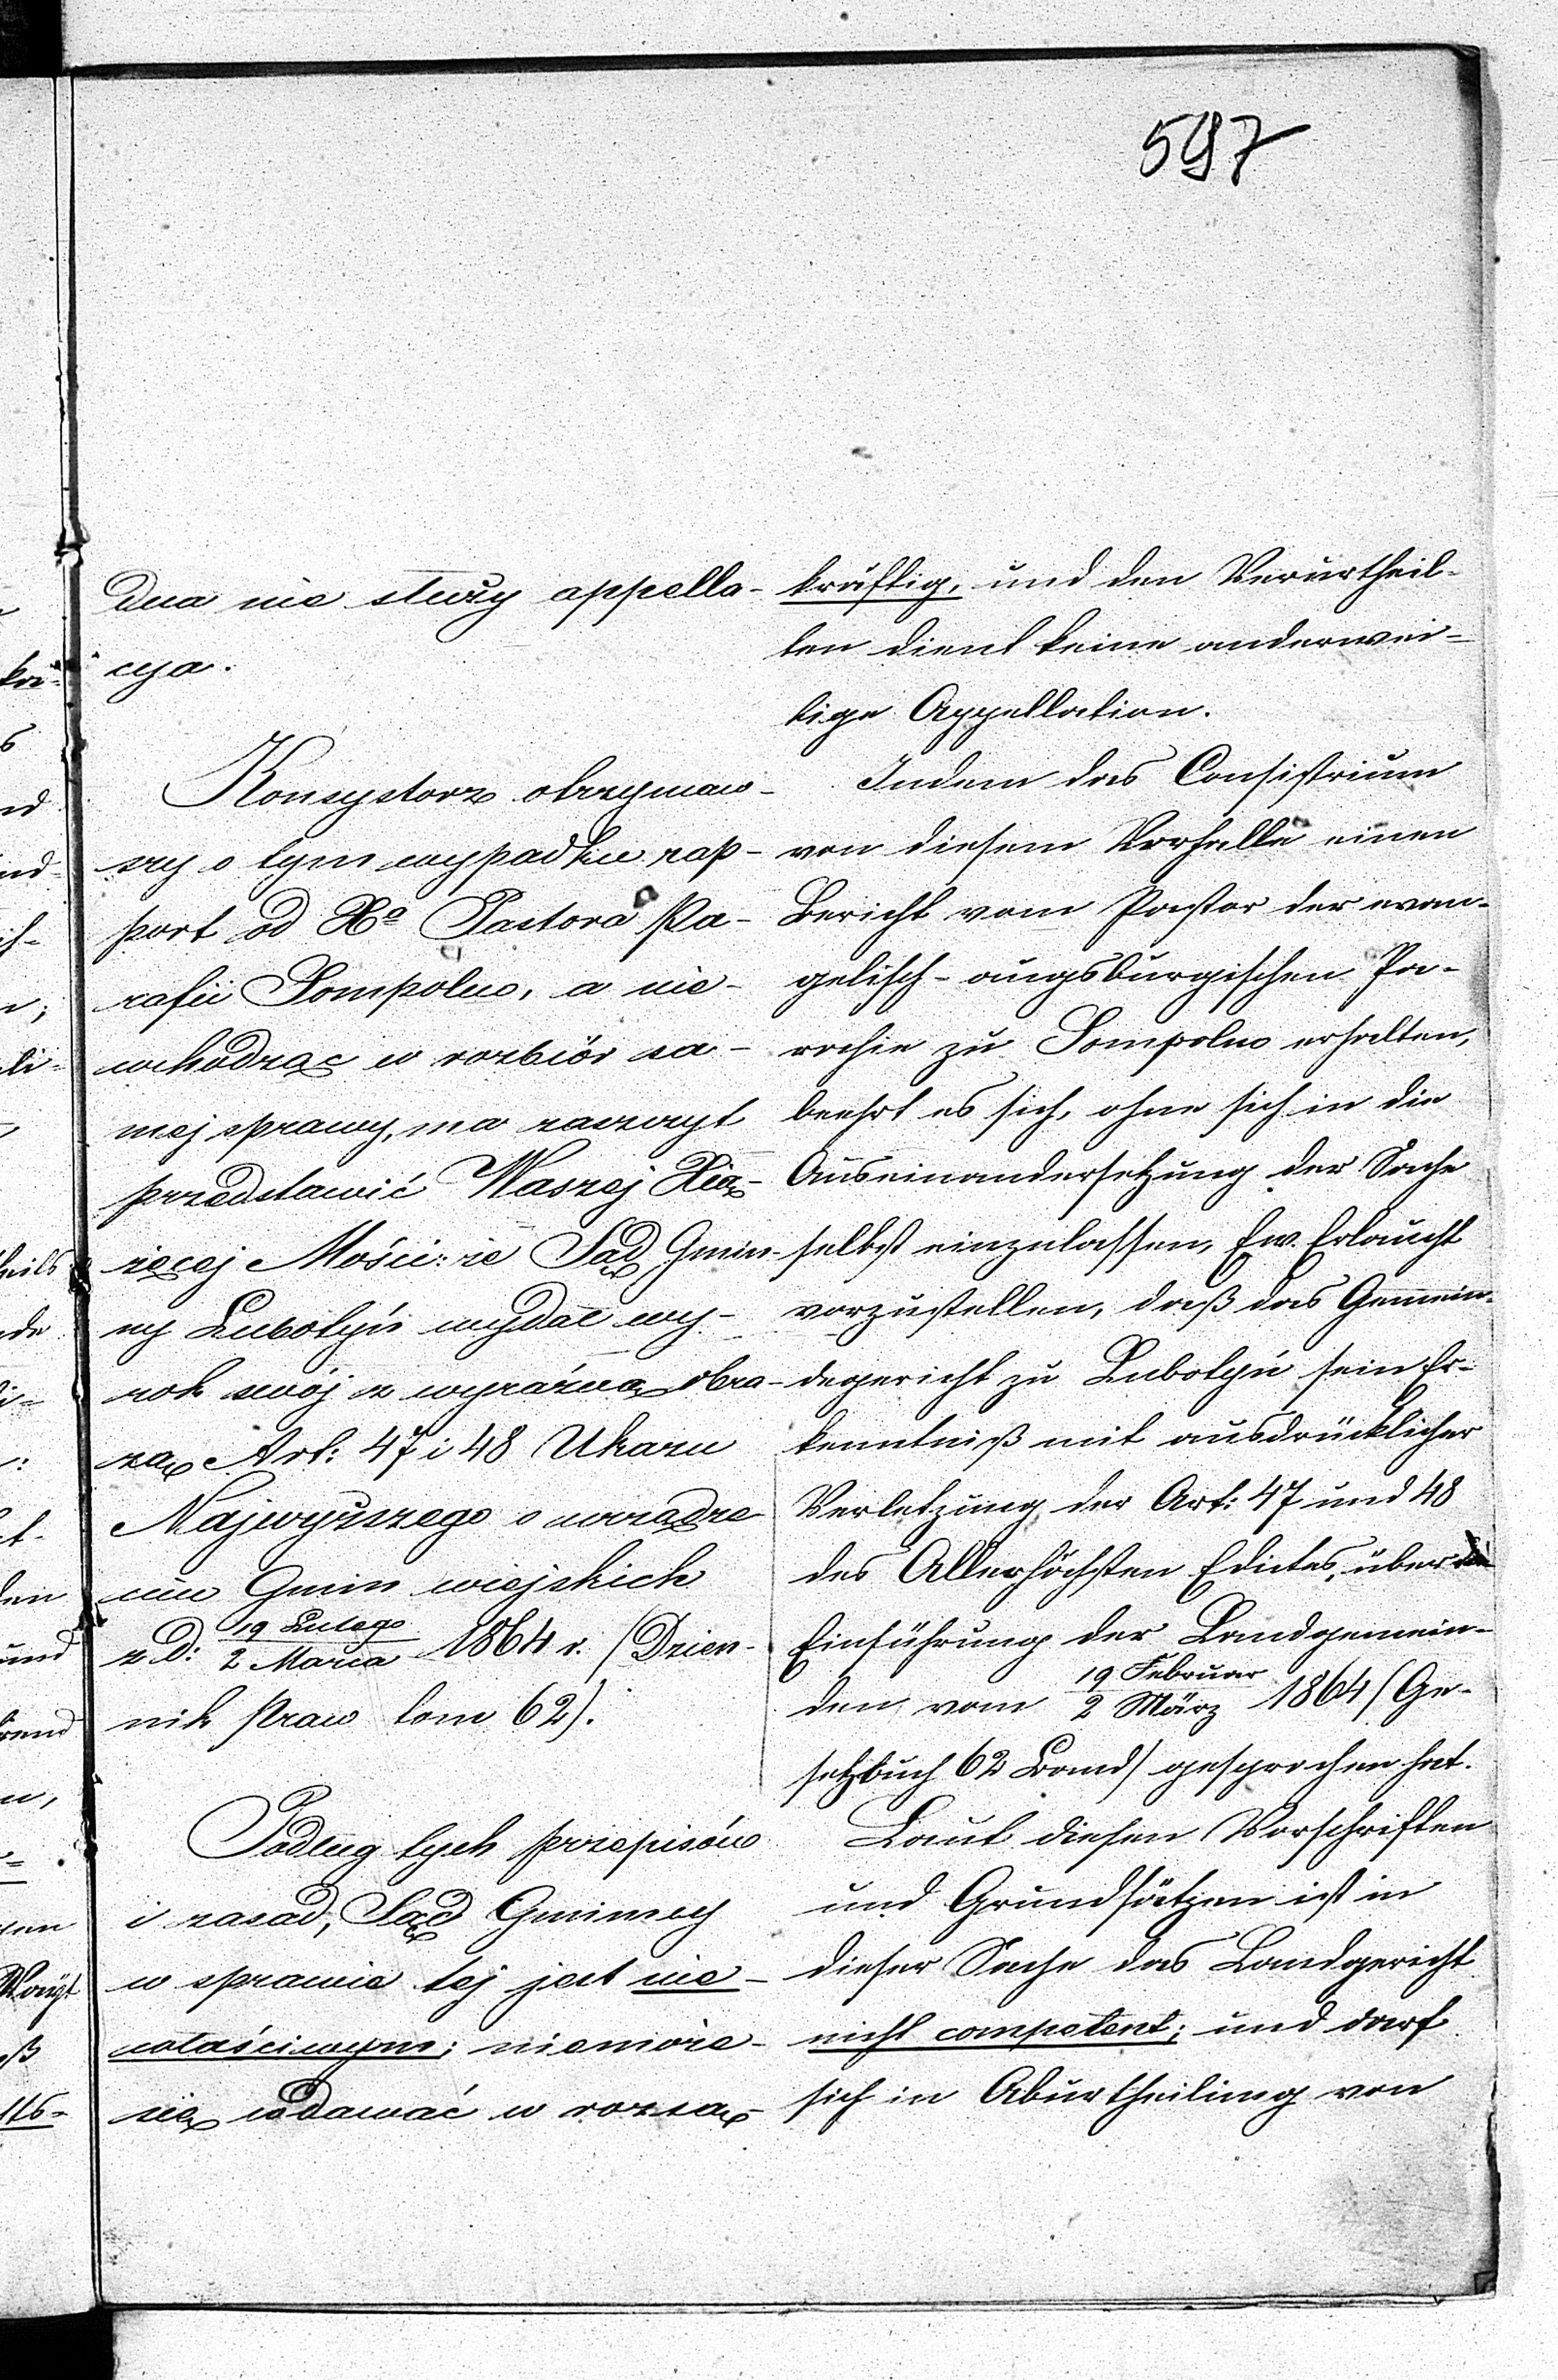 597
dna nie służy appella-
cya.
Konsystorz otrzymaw-
szy o tym wypadku rap-
port od Xa Pastora Pa-
rafii Sompolno, a nie-
wchodząc w rozbiór sa-
mej sprawy, ma zaszczyt
przedstawić Waszej Xią-
żęcej Mości: że Sąd Gmin-
ny Lubotyń wydał wy-
rok swój z wyraźną obra-
zą Art: 47 i 48 Ukazu
Najwyższego o urządze
niu Gmin wiejskich
z D: 19 Lutego / 2 Marca 1864 r. (Dzien-
nik Praw tom 62).
Podług tych przepisów
i zasad, Sąd Gminny
w sprawie tej jest nie-
właściwym; niemoże-
się wdawać w rozsą-
kräftig, und den Verurtheil-
ten dient keine anderwei-
tige Appellation.
Indem das Consistrium
von diesem Vorfalle einen
Bericht vom Pastor der evan-
gelisch-augsburgischen Pa-
rochie zu Sompolno erhalten,
beehrt es sich, ohne sich in die
Auseinandersetzung der Sache
selbst einzulassen, Ew. Erlaucht
vorzustellen, daß das Gemein-
degericht zu Lubotyń sein Er-
kenntniß mit ausdrücklicher
Verletzung der Art: 47 und 48
des Allerhöchsten Edictes, über die
Einführung der Landgemein-
den vom 19 Februar / 2 März 1864 (Ge-
setzbuch 62 Band) gesprochen hat.
Laut diesen Vorschriften
und Grundsätzen ist in
dieser Sache das Landgericht
nicht competent; und darf
sich in Aburtheilung von